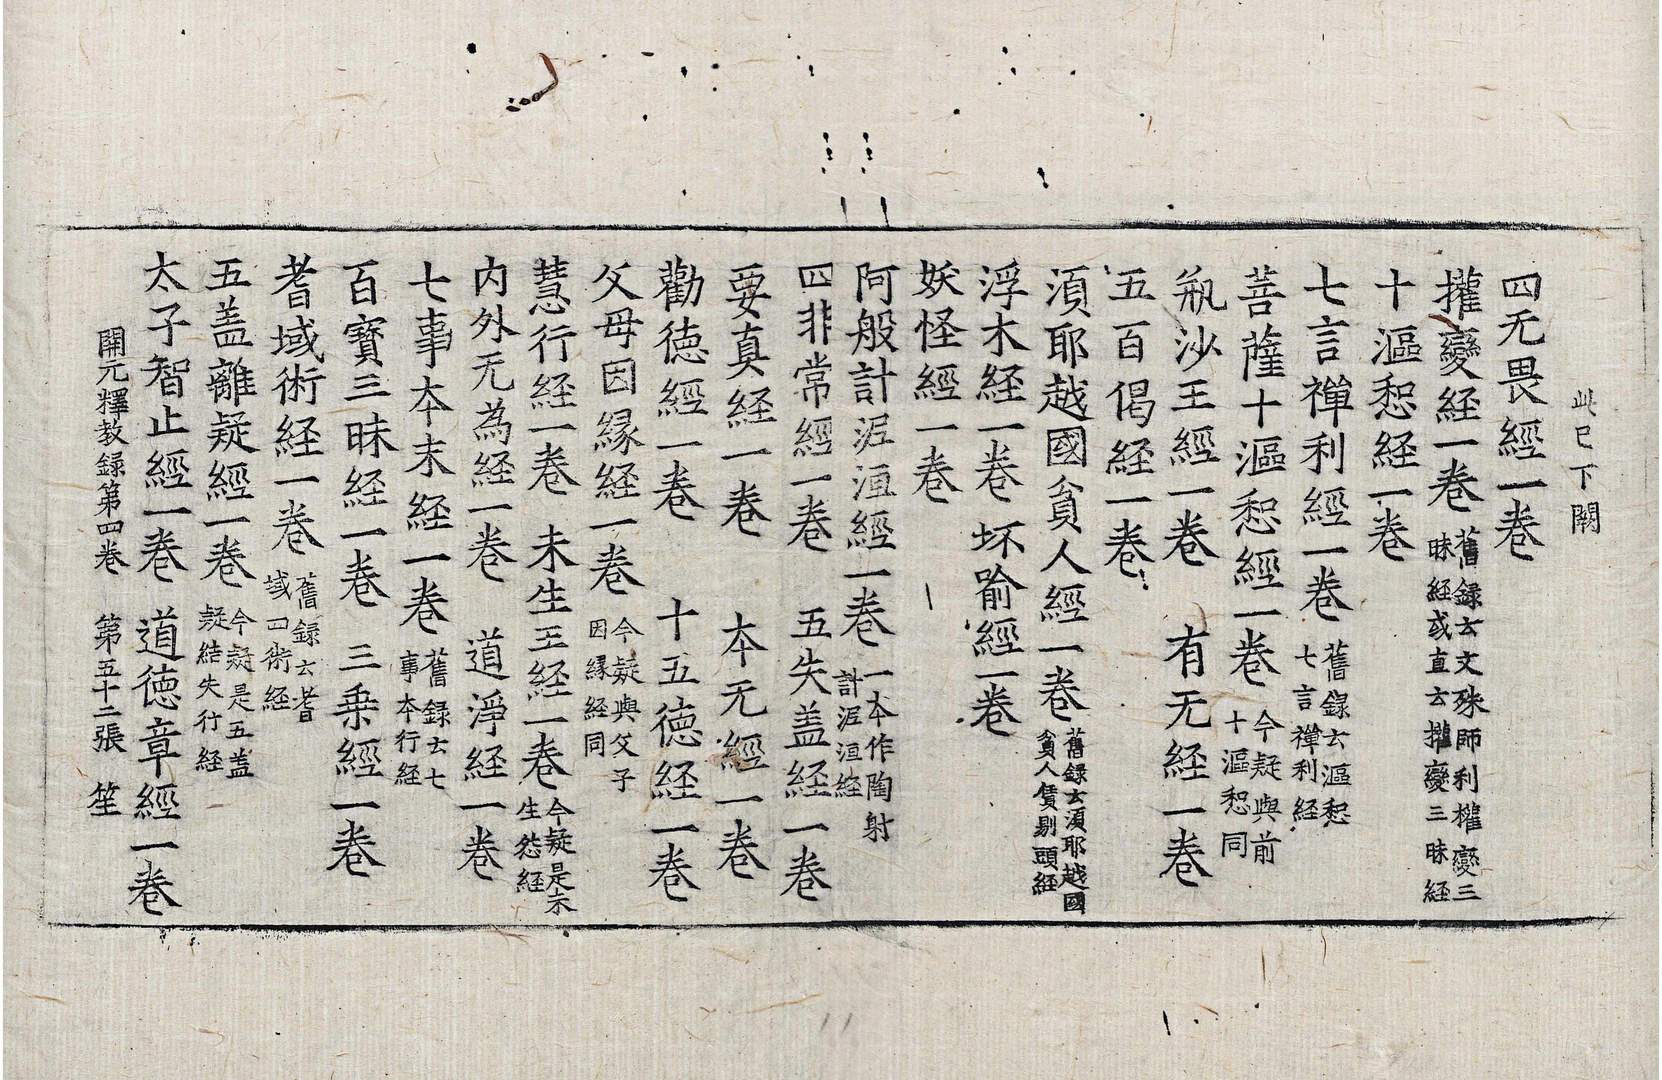 此巳下闕
四无畏經一卷
攉變経一卷 舊録云文殊師利權變三昧経或直云攉變三昧経
十漚惒経一卷
七言禪利經一卷 舊録云漚惒七言禪利経
菩薩十漚惒經一卷 今疑與前十漚惒同
瓶沙王經一卷 有无経一卷
五百偈経一卷
湏耶越國貧人經一卷 舊録云湏耶越國貧人賃剔頭経
浮木経一卷 坏喻經一卷
妖怪經一卷
阿般計泥洹經一卷 一本作陶射計泥洹経
四非常經一卷 五失盖経一卷
要真経一卷 本无經一卷
勸徳經一卷 十五徳経一卷
父母因縁経一卷 今疑與父子因縁経同
慧行経一卷 未生王経一卷 今疑是未生怨経
内外无為経一卷 道淨経一卷
七事本末経一卷 舊録云七事本行経
百寳三昧経一卷 三乗經一卷
耆域術経一卷 舊録云耆域四術経
五盖離疑經一卷 今疑是五盖疑結失行経
太子智止經一卷 道徳章經一卷
開元釋教録第四卷 第五十二張 笙